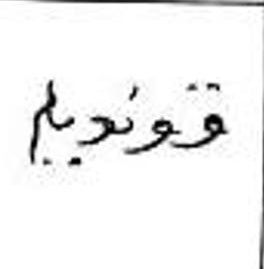 قونديلم